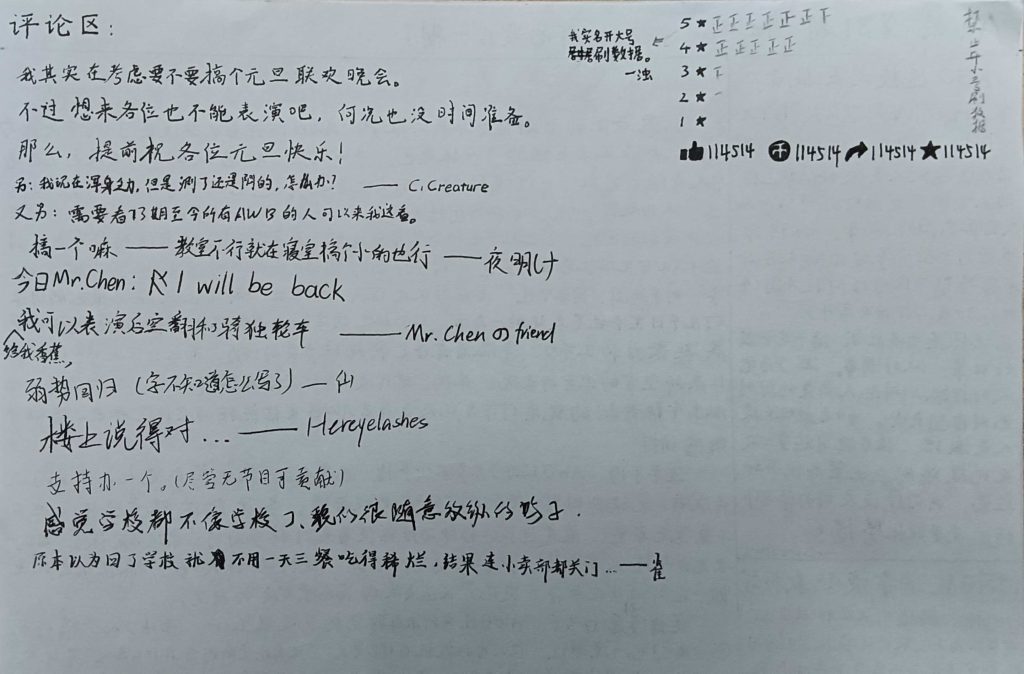 评论区:
我其实在考虑要不要搞个元旦联欢晚会。
不过想来各位也不能表演吧，何况也没时间准备。
那么，提前祝各位元旦快乐！
另：我现在浑身乏力，但是测了还是阴的，怎么办？ —— C.Creature
又另：需要看13期至今所有AWB的人可以来我这看。
搞一个嘛 —— 教室不行就在寝室搞个小的也行 —— 夜明け
今日Mr.Chen: I will be back
给我香蕉，我可以表演后空翻和骑独轮车 —— Mr. Chen の friend
弱势回归（字不知道怎么写了）— 仙
楼上说得对... —— Hereyelashes
支持办一个。(尽管无节目可贡献)
感觉学校都不像学校了、貌似很随意放纵的样子.
原本以为回了学校就不用一天三餐吃得稀烂，结果连小卖部都关门... —— 雀
我实名开大号
刷数据。
一浊
5★ 正正正正正正下
4★ 正正正正正
3★ 下
2★ 一
1★
114514 币114514 114514 ★114514
禁止开小号刷数据